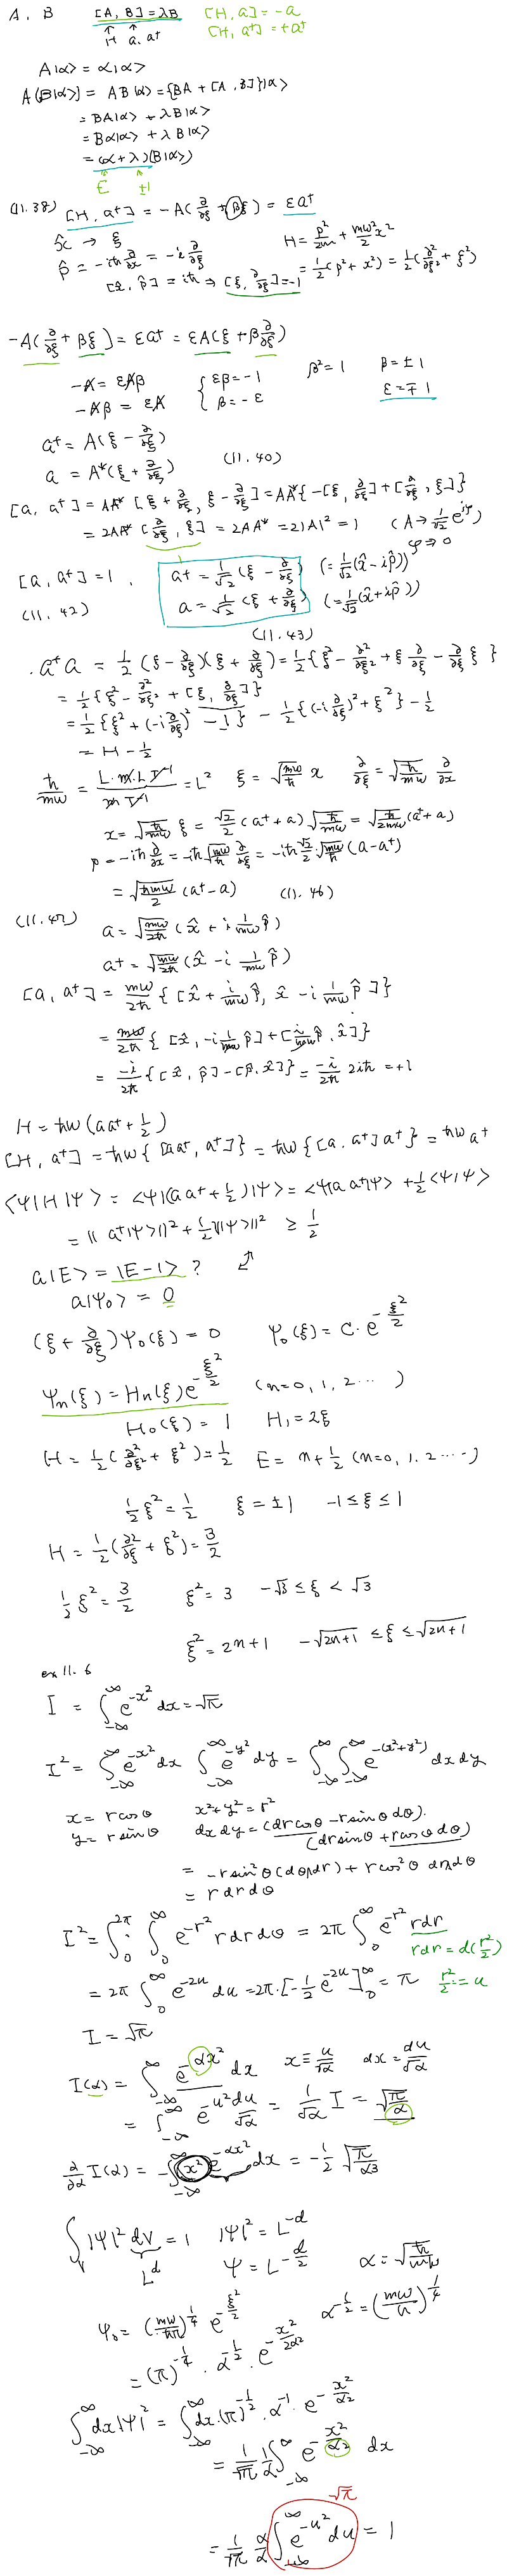 A, B [A, B] = λB [H, a] = -a
↑ ↑ [H, a†] = +a†
H a, a†
A|α> = α|α>
A(B|α>) = AB|α> = {BA + [A, B]}|α>
= BA|α> + λB|α>
= Bα|α> + λB|α>
= (α+λ)(B|α>)
E ±1
(11.38) [H, a†] = -A(∂/∂ξ + βξ) = εa†
x̂ → ξ H = p²/2m + mω²/2 x²
p̂ = -iħ ∂/∂x = -i ∂/∂ξ = 1/2(p² + x²) = 1/2(∂²/∂ξ² + ξ²)
[x̂, p̂] = iħ ⇒ [ξ, ∂/∂ξ] = -1
-A(∂/∂ξ + βξ) = εa† = εA(ξ + β ∂/∂ξ)
-A = εAβ { εβ = -1 β² = 1 β = ±1
-Aβ = εA { β = -ε ε = ∓1
a† = A(ξ - ∂/∂ξ)
a = A*(ξ + ∂/∂ξ) (11.40)
[a, a†] = AA*[ξ + ∂/∂ξ, ξ - ∂/∂ξ] = AA*{-[ξ, ∂/∂ξ] + [∂/∂ξ, ξ]}
= 2AA*[∂/∂ξ, ξ] = 2AA* = 2|A|² = 1 (A → 1/√2 e^{iφ})
φ → 0
[a, a†] = 1, a† = 1/√2 (ξ - ∂/∂ξ) (= 1/√2 (x̂ - ip̂))
(11.42) a = 1/√2 (ξ + ∂/∂ξ) (= 1/√2 (x̂ + ip̂))
(11.43)
a†a = 1/2 (ξ - ∂/∂ξ)(ξ + ∂/∂ξ) = 1/2{ξ² - ∂²/∂ξ² + ξ ∂/∂ξ - ∂/∂ξ ξ}
= 1/2{ξ² - ∂²/∂ξ² + [ξ, ∂/∂ξ]}
= 1/2{ξ² + (-i ∂/∂ξ)² - 1} = 1/2{(-i ∂/∂ξ)² + ξ²} - 1/2
= H - 1/2
ħ/mω = L·m·L T⁻¹/m T⁻¹ = L² ξ = √(mω/ħ) x ∂/∂ξ = √(ħ/mω) ∂/∂x
x = √(ħ/mω) ξ = √2/2 (a† + a) √(ħ/mω) = √(ħ/2mω) (a† + a)
p = -iħ ∂/∂x = -iħ √(mω/ħ) ∂/∂ξ = -iħ √2/2 √(mω/ħ) (a - a†)
= √(ħmω/2) (a† - a) (11.46)
(11.47) a = √(mω/2ħ) (x̂ + i 1/mω p̂)
a† = √(mω/2ħ) (x̂ - i 1/mω p̂)
[a, a†] = mω/2ħ {[x̂ + i/mω p̂, x̂ - i 1/mω p̂]}
= mω/2ħ {[x̂, -i 1/mω p̂] + [i/mω p̂, x̂]}
= -i/2ħ {[x̂, p̂] - [p̂, x̂]} = -i/2ħ 2iħ = +1
H = ħω(aa† + 1/2)
[H, a†] = ħω{[aa†, a†]} = ħω{[a, a†]a†} = ħωa†
<Ψ|H|Ψ> = <Ψ|(aa† + 1/2)|Ψ> = <Ψ|aa†|Ψ> + 1/2<Ψ|Ψ>
= ||a†|Ψ>||² + 1/2|||Ψ>||² ≥ 1/2
a|E> = |E-1> ?
a|Ψ₀> = 0
(ξ + ∂/∂ξ)Ψ₀(ξ) = 0 Ψ₀(ξ) = C·e^{-ξ²/2}
Ψn(ξ) = Hn(ξ)e^{-ξ²/2} (n=0, 1, 2 ···)
H₀(ξ) = 1 H₁ = 2ξ
H = 1/2(∂²/∂ξ² + ξ²) = 1/2 E = n + 1/2 (n=0, 1, 2 ····)
1/2 ξ² = 1/2 ξ = ±1 -1 ≤ ξ ≤ 1
H = 1/2(∂²/∂ξ + ξ²) = 3/2
1/2 ξ² = 3/2 ξ² = 3 -√3 ≤ ξ < √3
ξ² = 2n+1 -√(2n+1) ≤ ξ ≤ √(2n+1)
ex 11.6
I = ∫_{-∞}^{∞} e^{-x²} dx = √π
I² = ∫_{-∞}^{∞} e^{-x²} dx ∫_{-∞}^{∞} e^{-y²} dy = ∫_{-∞}^{∞} ∫_{-∞}^{∞} e^{-(x²+y²)} dx dy
x = r cosθ x² + y² = r²
y = r sinθ dx dy = (dr cosθ - r sinθ dθ)·
(dr sinθ + r cosθ dθ)
= -r sin²θ (dθ dr) + r cos²θ dr dθ
= r dr dθ
I² = ∫_0^{2π} ∫_0^∞ e^{-r²} r dr dθ = 2π ∫_0^∞ e^{-r²} r dr
r dr = d(r²/2)
= 2π ∫_0^∞ e^{-2u} du = 2π·[-1/2 e^{-2u}]_0^∞ = π r²/2 = u
I = √π
I(α) = ∫_{-∞}^{∞} e^{-αx²} dx x ≡ u/√α dx = du/√α
= ∫_{-∞}^{∞} e^{-u²} du/√α = 1/√α I = √(π/α)
∂/∂α I(α) = -∫_{-∞}^{∞} x² e^{-αx²} dx = -1/2 √(π/α³)
∫_V |Ψ|² dV = 1 |Ψ|² = L^{-d}
L^d Ψ = L^{-d/2} α = √(ħ/mω)
φ₀ = (mω/ħπ)^{1/4} e^{-ξ²/2} α^{-1/2} = (mω/ħ)^{1/4}
= (π)^{-1/4} · α^{-1/2} · e^{-x²/2α²}
∫_{-∞}^{∞} dx|Ψ|² = ∫_{-∞}^{∞} dx·(π)^{-1/2}·α^{-1}·e^{-x²/α²}
= 1/√π 1/α ∫_{-∞}^{∞} e^{-x²/α²} dx
√π
= 1/√π α/α ∫_{-∞}^{∞} e^{-u²} du = 1